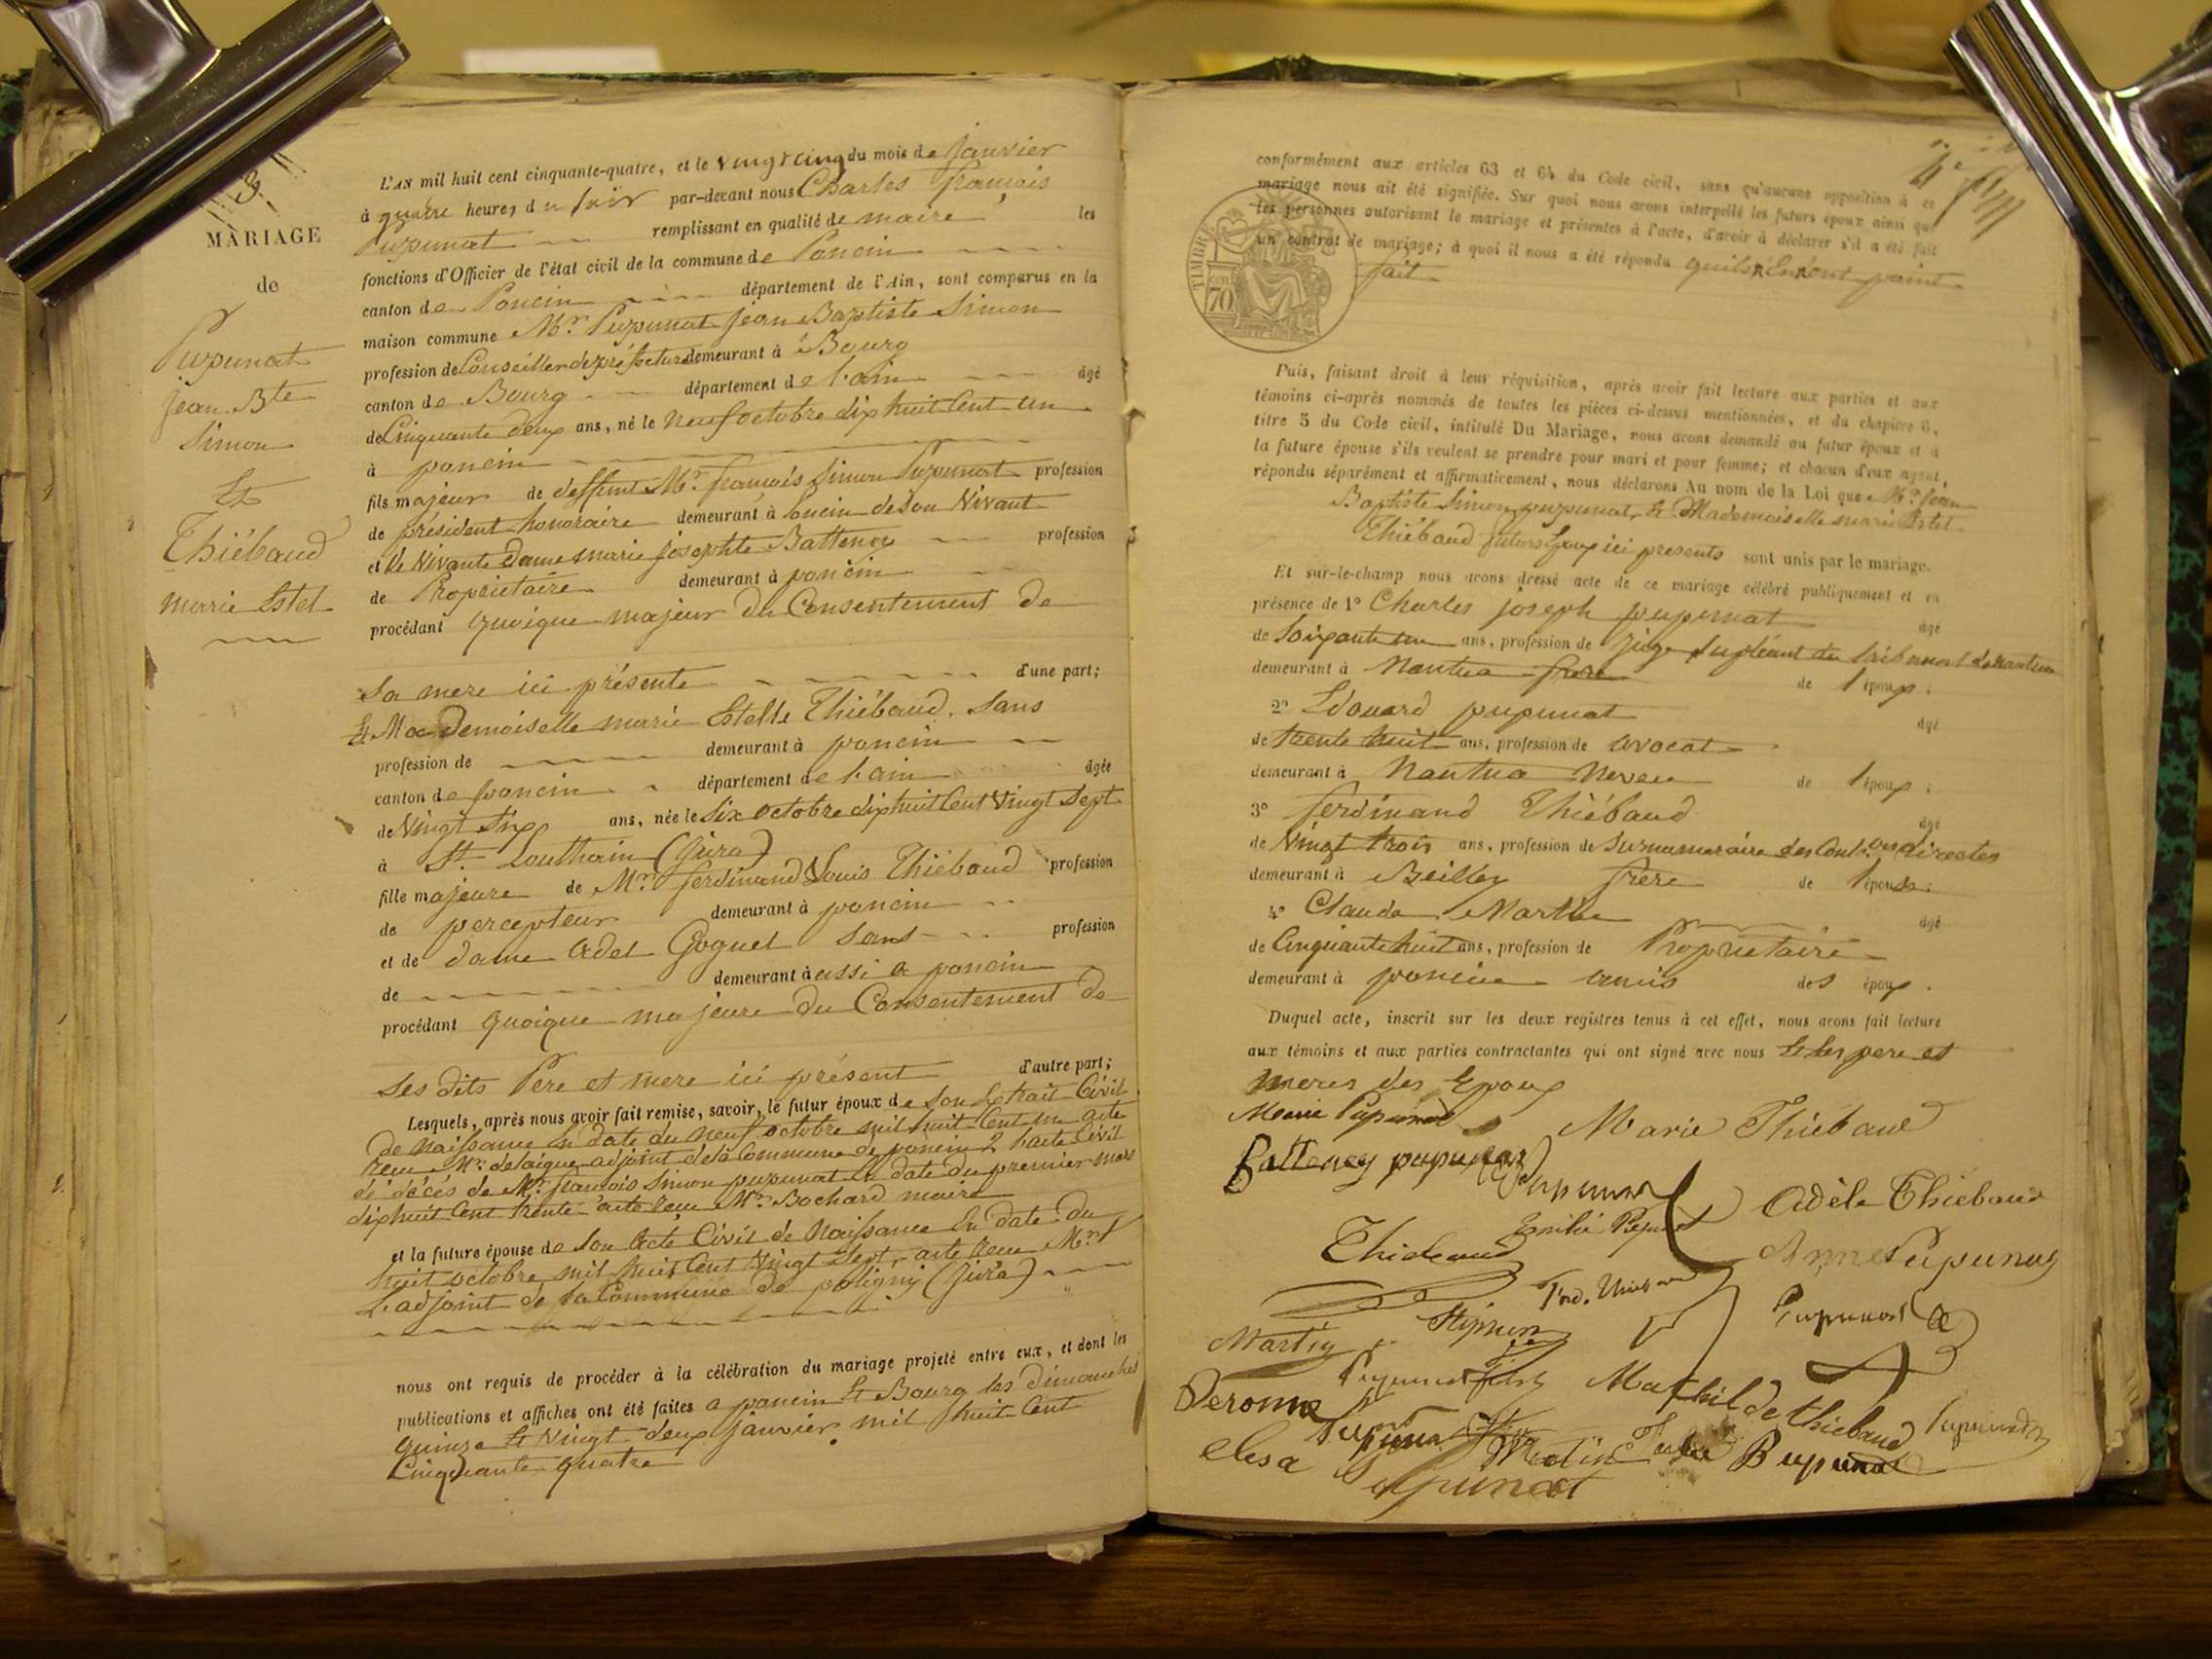 3
MARIAGE
de
Pupunat
jean Bte
Simon
Et
Thiébaud
marie Estel
L'AN mil huit cent cinquante-quatre, et le vingt cinq du mois de janvier
à quatre heures du soir par-devant nous Charles François
Pupunat remplissant en qualité de maire les
fonctions d'Officier de l'état civil de la commune de Poncin
canton de Poncin département de l'Ain, sont comparus en la
maison commune Mr. Pupunat jean Baptiste Simon
profession de Conseiller de préfecture demeurant à Bourg
canton de Bourg département de l'ain âgé
de Cinquante deux ans, né le neuf octobre dix huit Cent un
à poncin
fils majeur de deffunt Mr. françois Simon Pupunat profession
de président honoraire demeurant à Poncin de son Vivant
et de Vivante Dame marie josephte Battenay profession
de Propriétaire demeurant à poncin
procédant quoique majeur du Consentement de
Sa mere ici présente d'une part;
Et Mademoiselle marie Estelle Thiébaud. Sans
profession de demeurant à poncin
canton de poncin département de l'ain âgée
de Vingt Six ans, née le Six octobre dix huit Cent Vingt Sept
à St. Louthain (Jura)
fille majeure de Mr. ferdinand Louis Thiébaud profession
de percepteur demeurant à poncin
et de dame Adel Goguel Sans profession
de demeurant à aussi a poncin
procédant quoique majeure du Consentement de
Ses dits Pere et mere ici présent d'autre part;
Lesquels, après nous avoir fait remise, savoir, le futur époux de Son Extrait Civil
de naissance En date du neuf octobre mil huit Cent un acte
reçu Mr. delaigue adjoint de la Commune de poncin 2 l'acte Civil
de décés de Mr. françois Simon pupunat En date du premier mars
dix huit Cent trente acte reçu Mr. Bochard maire
et la future épouse de Son Acte Civil de Naissance En date du
huit octobre mil huit Cent Vingt Sept acte reçu Mr.
L'adjoint de la Commune de poligny (Jura)
nous ont requis de procéder à la célébration du mariage projeté entre eux, et dont les
publications et affiches ont été faites a poncin Et Bourg les dimanches
quinze Et Vingt deux janvier mil huit Cent
Cinquante quatre
conformément aux articles 63 et 64 du Code civil, sans qu'aucune opposition à ce
mariage nous ait été signifiée. Sur quoi nous avons interpellé les futurs époux ainsi que
les personnes autorisant le mariage et présentes à l'acte, d'avoir à déclarer s'il a été fait
un contrat de mariage; à quoi il nous a été répondu quils n'En n'ont point
fait
TIMBRE
70
Puis, faisant droit à leur réquisition, après avoir fait lecture aux parties et aux
témoins ci-après nommés de toutes les pièces ci-dessus mentionnées, et du chapitre 6,
titre 5 du Code civil, intitulé Du Mariage, nous avons demandé au futur époux et à
la future épouse s'ils veulent se prendre pour mari et pour femme; et chacun d'eux ayant,
répondu séparément et affirmativement, nous déclarons Au nom de la Loi que Mr. Jean
Baptiste Simon pupunat Et Mademoiselle marie Estel
Thiébaud futurs Epoux ici presents sont unis par le mariage.
Et sur-le-champ nous avons dressé acte de ce mariage célébré publiquement et en
présence de 1° Charles joseph pupunat âgé
de Soixante un ans, profession de juge Supléant du tribunal de nantua
demeurant à Nantua frere de l'époux;
2° Edouard pupunat âgé
de trente huit ans, profession de avocat
demeurant à Nantua neveu de l'époux;
3° ferdinand Thiébaud âgé
de Vingt trois ans, profession de Surnumeraire des Cont.ons directes
demeurant à Belley frère de l'épouse;
4° Claude Martin âgé
de Cinquante huit ans, profession de Propriétaire
demeurant à poncin amis des époux.
Duquel acte, inscrit sur les deux registres tenus à cet effet, nous avons fait lecture
aux témoins et aux parties contractantes qui ont signé avec nous Et Les pere et
meres des Epoux
Marie Pupunat Marie Thiebaud
Battenay pupunat Pupunat Adèle Thiebaud
Thiebaud Emilie Pupunat Anne Pupunat
Fnd. Thiebaud Pupunat
Martin
Pupunat fils Mathilde Thiebaud Pupunat
Peronne Pupunat
elisa Pupunat Pupunat